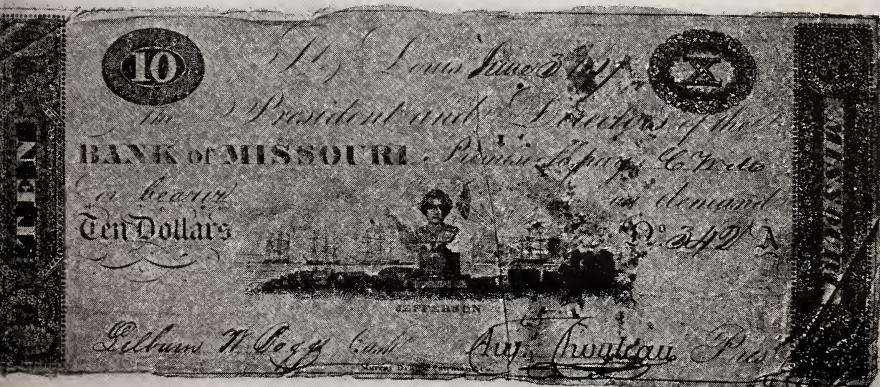 10 St. Louis June 3 1817 X
The President and Directors of the
BANK of MISSOURI Promise to pay
or bearer on demand
Ten Dollars No. 342 A
JEFFERSON
Lilburn W. Boggs Cash. Aug. Chouteau Prest.
TEN
MISSOURI